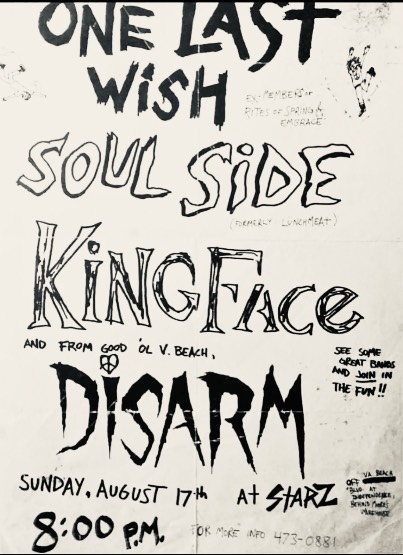 ONE LAST
WiSH
EX-MEMBERS OF
RITES OF SPRING &
EMBRACE
SOUL SiDE
(FORMERLY LUNCHMEAT)
KiNGFACe
AND FROM GOOD 'OL V. BEACH,
SEE SOME
GREAT BANDS
AND JOIN IN
THE FUN!!
DiSARM
SUNDAY, AUGUST 17th AT STARZ
OFF VA. BEACH
BLVD. AT
INDEPENDENCE,
BEHIND
8:00 P.M.
FOR MORE INFO 473-0881